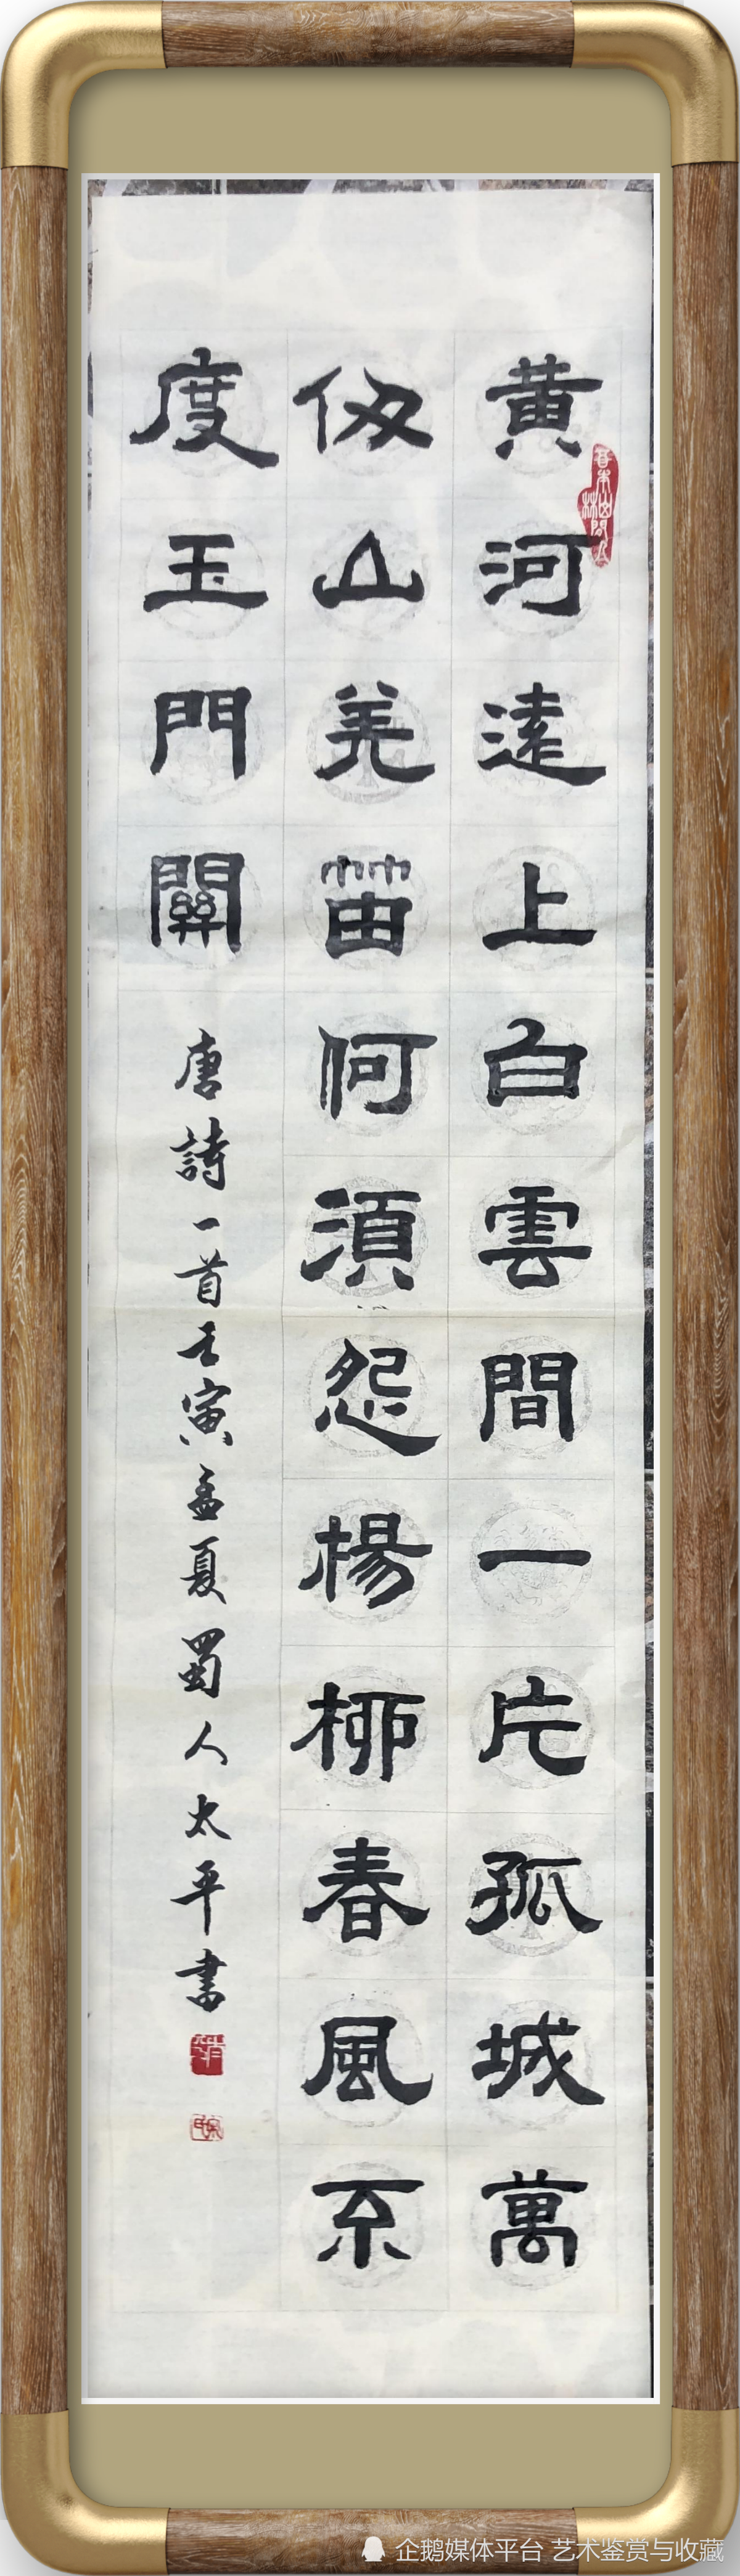 黄河遠上白雲間一片孤城萬
仞山羌笛何須怨楊柳春風不
度玉門關
唐詩一首壬寅孟夏蜀人太平書
企鹅媒体平台 艺术鉴赏与收藏